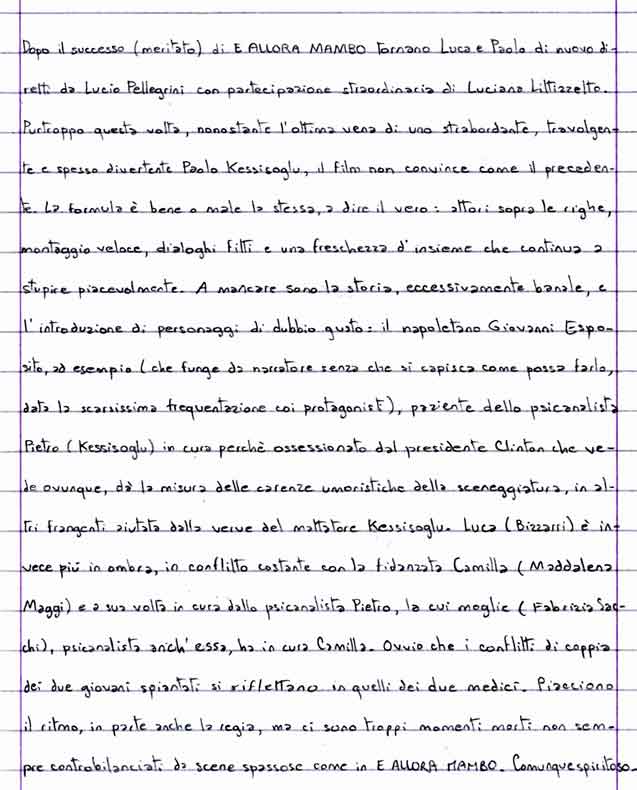 Dopo il successo (meritato) di E ALLORA MAMBO tornano Luca e Paolo di nuovo di-
retti da Lucio Pellegrini con partecipazione straordinaria di Luciana Littizzetto.
Purtroppo questa volta, nonostante l'ottima vena di uno strabordante, travolgen-
te e spesso divertente Paolo Kessisoglu, il film non convince come il preceden-
te. La formula è bene o male la stessa, a dire il vero: attori sopra le righe,
montaggio veloce, dialoghi fitti e una freschezza d'insieme che continua a
stupire piacevolmente. A mancare sono la storia, eccessivamente banale, e
l'introduzione di personaggi di dubbio gusto: il napoletano Giovanni Espo-
sito, ad esempio (che funge da narratore senza che si capisca come possa farlo,
data la scarsissima frequentazione coi protagonisti), paziente dello psicanalista
Pietro (Kessisoglu) in cura perchè ossessionato dal presidente Clinton che ve-
de ovunque, dà la misura delle carenze umoristiche della sceneggiatura, in al-
tri frangenti aiutata dalla verve del mattatore Kessisoglu. Luca (Bizzarri) è in-
vece più in ombra, in conflitto costante con la fidanzata Camilla (Maddalena
Maggi) e a sua volta in cura dallo psicanalista Pietro, la cui moglie (Fabrizia Sac-
chi), psicanalista anch'essa, ha in cura Camilla. Ovvio che i conflitti di coppia
dei due giovani spiantati si riflettano in quelli dei due medici. Piacciono
il ritmo, in parte anche la regia, ma ci sono troppi momenti morti non sem-
pre controbilanciati da scene spassose come in E ALLORA MAMBO. Comunque spiritoso.